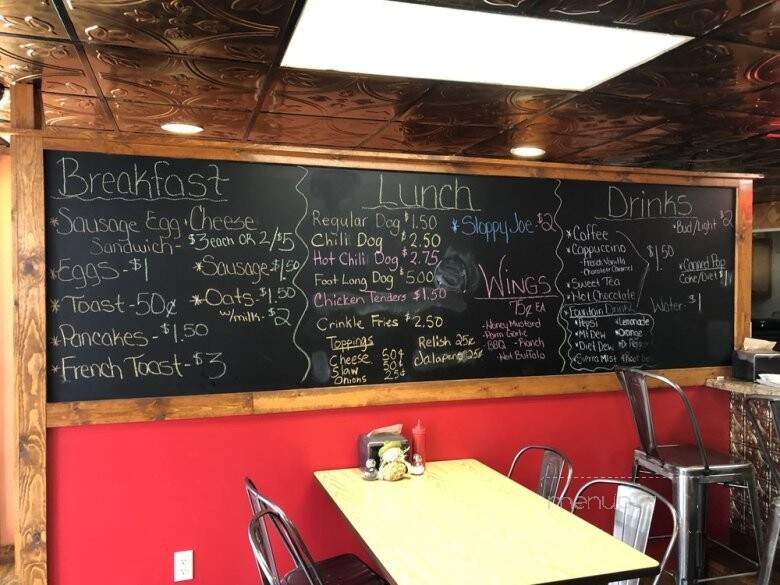 Breakfast
*Sausage Egg & Cheese
Sandwich - $3 each OR 2/$5
*Eggs - $1
*Sausage - $1.50
*Toast - 50¢
*Oats - $1.50
w/milk - $2
*Pancakes - $1.50
*French Toast - $3
Lunch
Regular Dog $1.50
Chili Dog $2.50
Hot Chili Dog $2.75
Foot Long Dog $5.00
Chicken Tenders $1.50
Crinkle Fries $2.50
Toppings
Cheese 50¢
Slaw 50¢
Onions 25¢
Relish 25¢
Jalapeno 25¢
*Sloppy Joe - $2
Wings
75¢ EA
-Honey Mustard
-Parm Garlic
-BBQ -Ranch
-Hot Buffalo
Drinks
*Coffee
*Cappuccino
-French Vanilla
-Chocolate Caramel
*Sweet Tea
*Hot Chocolate
*Fountain Drinks
*Pepsi *Lemonade
*Mt Dew *Orange
*Diet Dew *Dr Pepper
*Sierra Mist *Root Beer
$1.50
*Bud/Light $2
*Canned Pop
Coke/Diet $1
Water - $1
menu